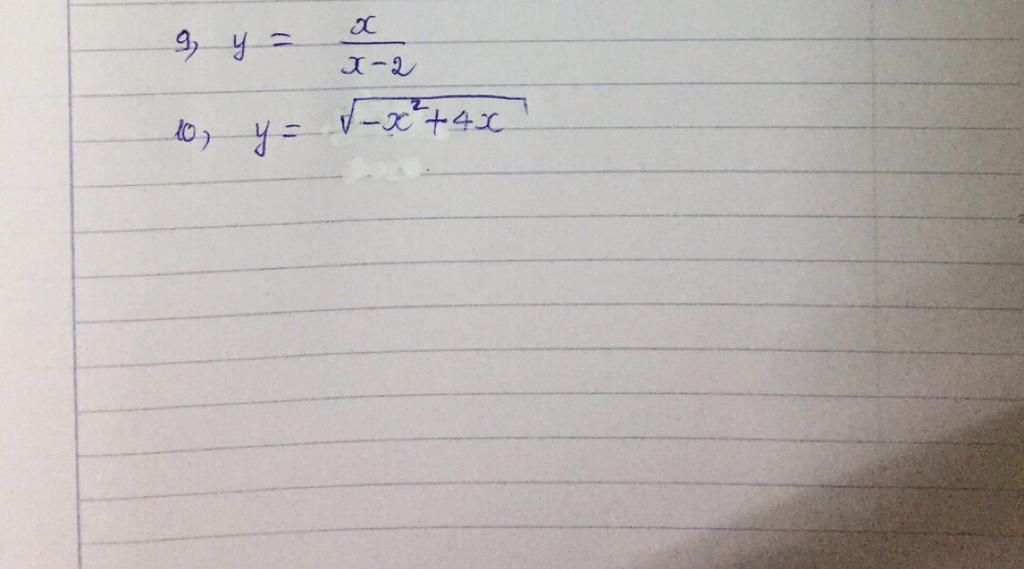 9, y = x/(x-2)
10, y = √(-x²+4x)